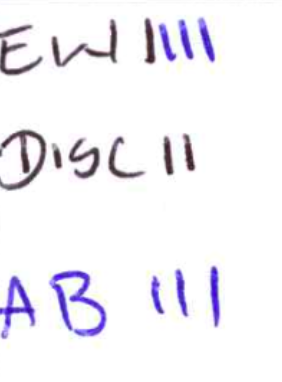 EW IIII
DISC II
AB III